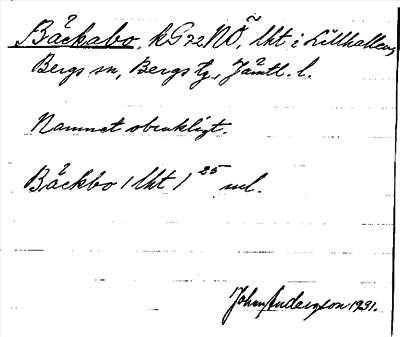 Bäckabo, kG72NÖ, lht i Lillhallens,
Bergs sn, Bergs tg, Jämtl. l.
Namnet obrukligt.
Bäckbo / lht / 25 uel.
John Andersson 1931.